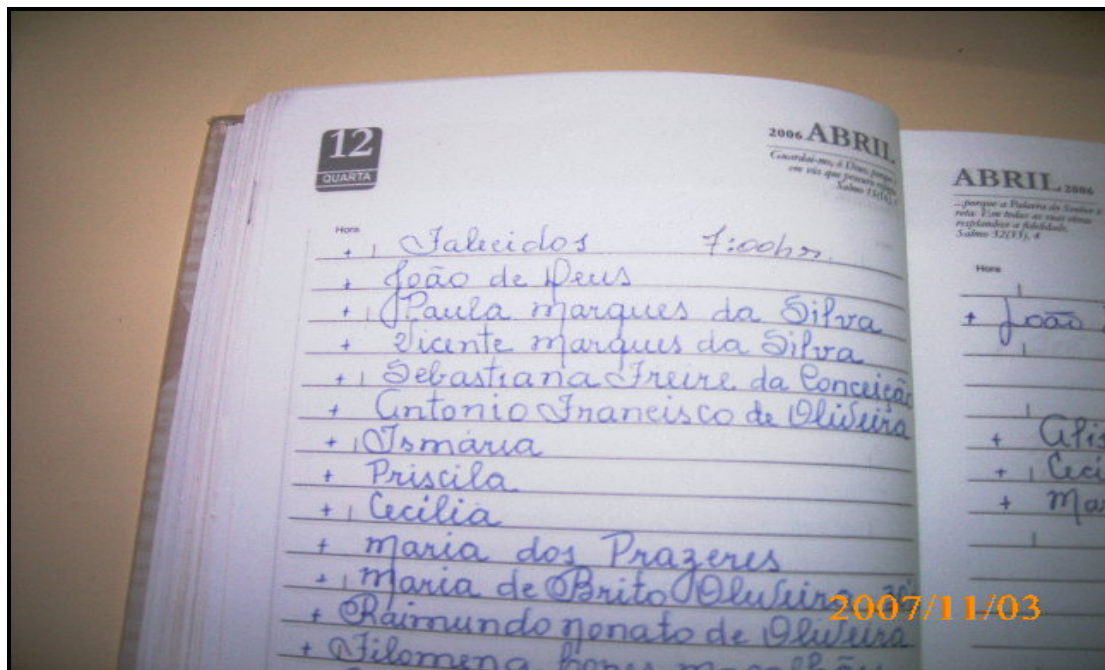 12
QUARTA
2006 ABRIL
Guardai-me, ó Deus, porque
em vós que procuro
Salmo
Hora
+ Falecidos 7:00hrs
+ João de Deus
+ Paula marques da Silva
+ Vicente marques da Silva
+ Sebastiana Freire da Conceição
+ Antonio Francisco de Oliveira
+ Ismária
+ Priscila
+ Cecília
+ maria dos Prazeres
+ maria de Brito Oliveira
+ Raimundo nonato de Oliveira
+ Filomena
ABRIL 2006
...porque a Palavra do Senhor é
reta. Em todas as suas obras
resplandece a fidelidade.
Salmo 32(33), 4
Hora
+ João
+
+ Ceci
+ Mar
2007/11/03